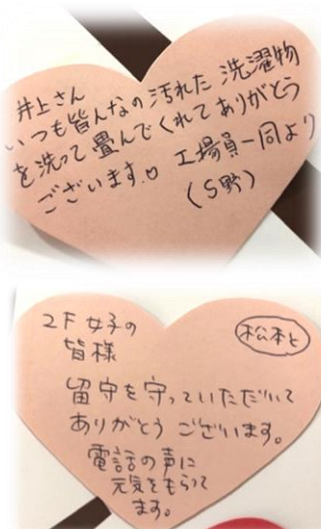 井上さん
いつも皆んなの汚れた洗濯物
を洗って畳んでくれてありがとう
ございます♡ 工場員一同より
(S野)
2F女子の
皆様
松本と
留守を守っていただいて
ありがとうございます。
電話の声に
元気をもらって
ます。